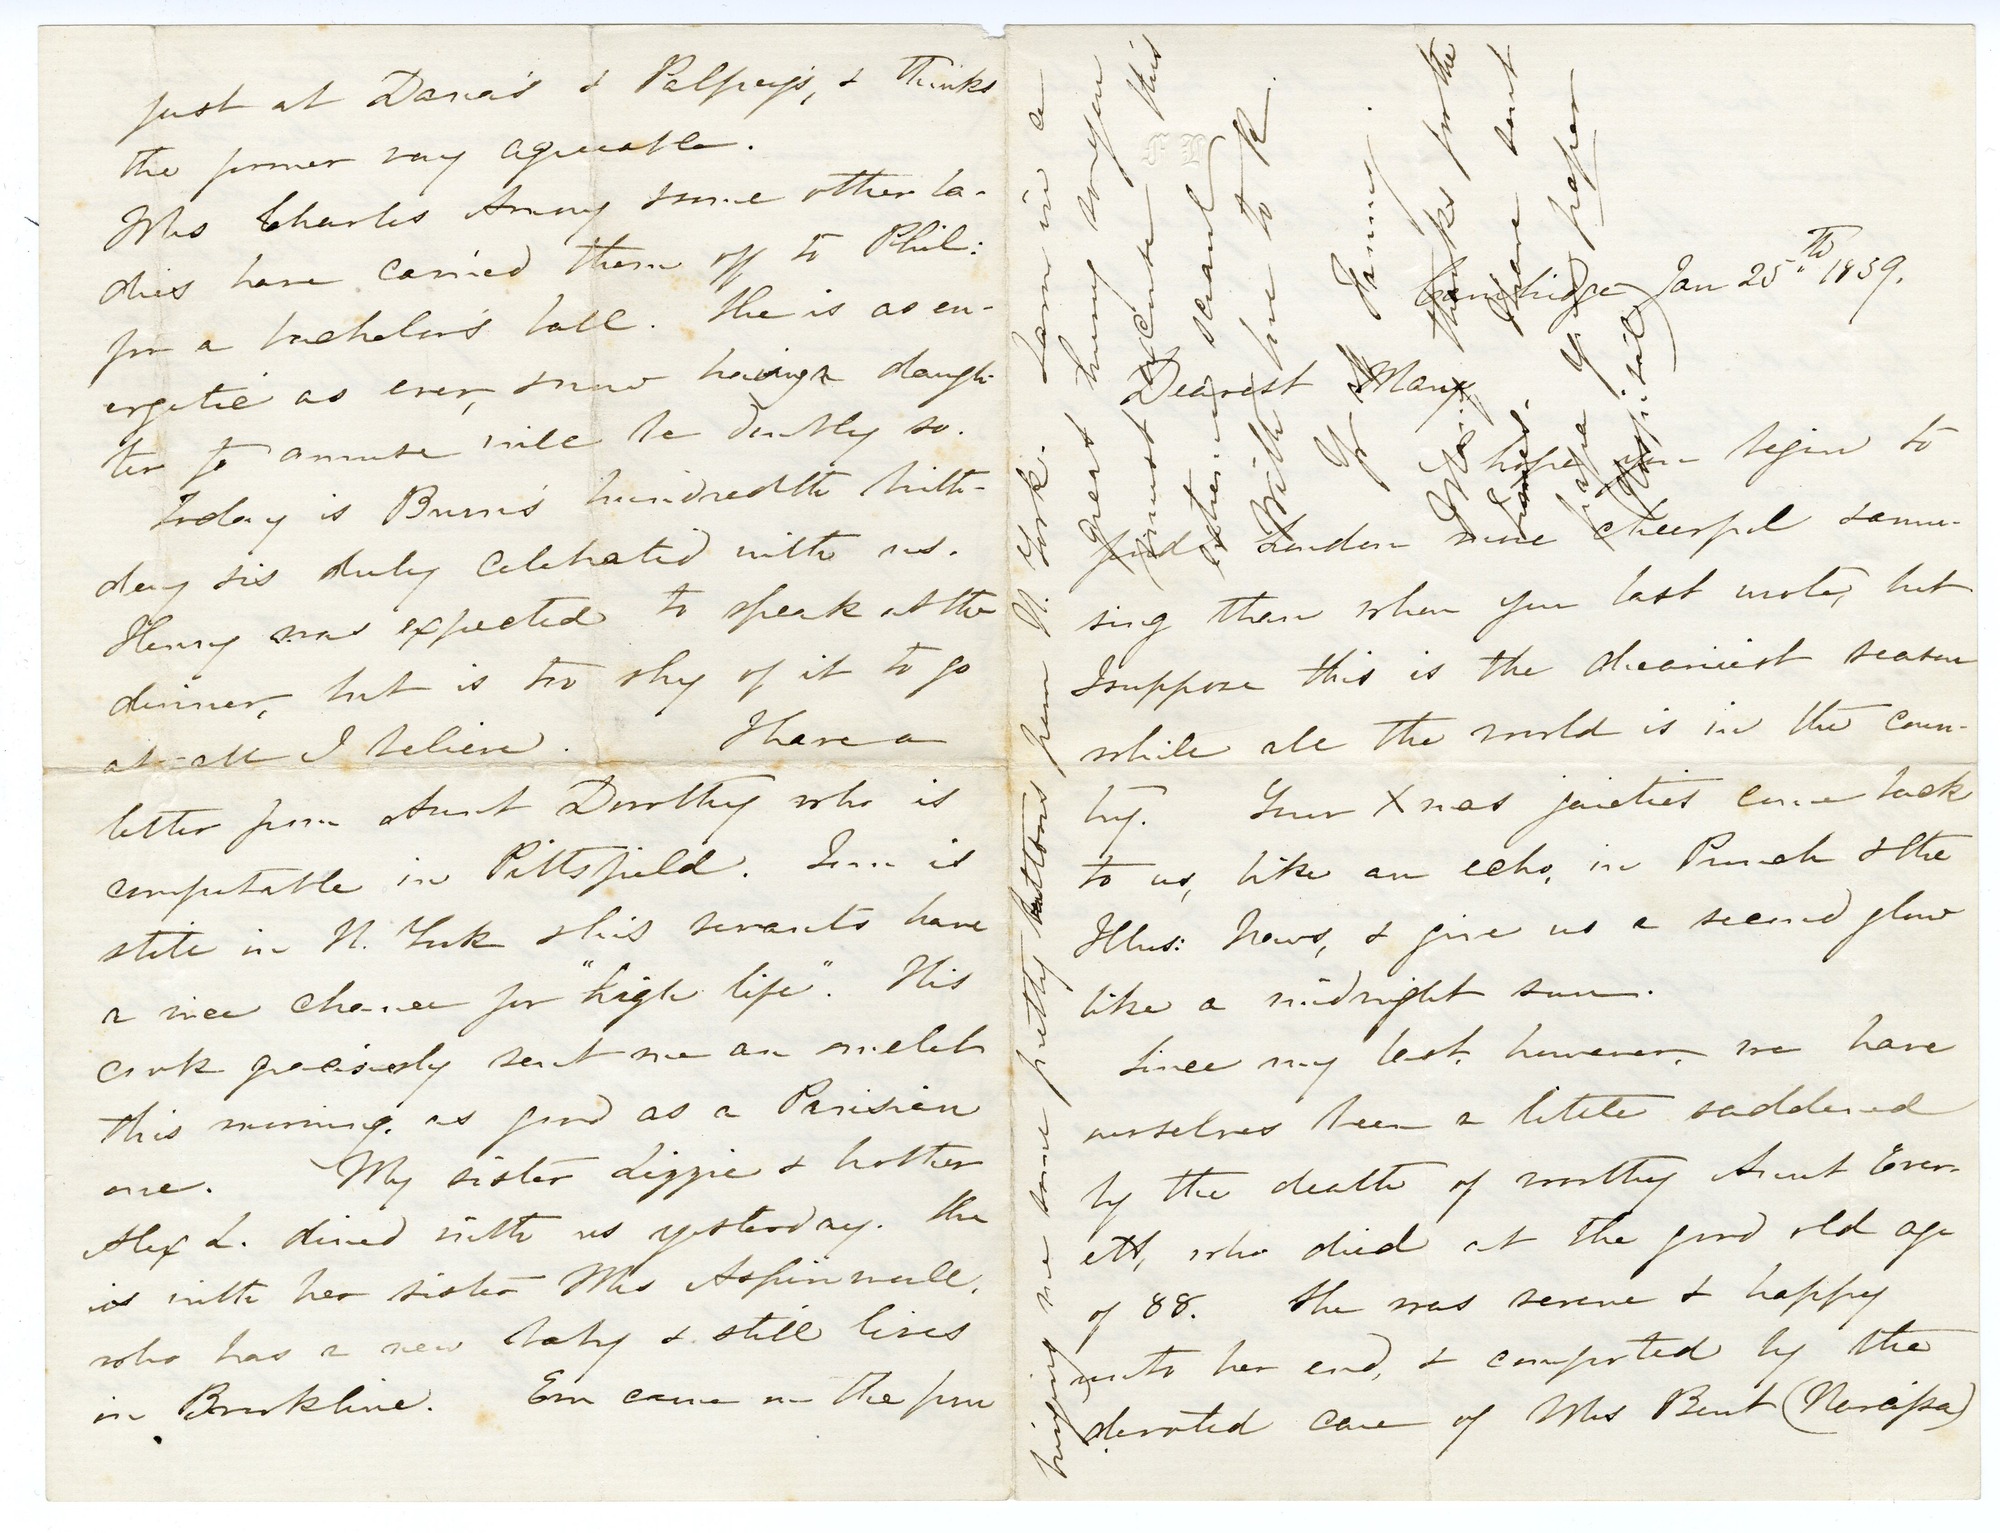 Cambridge Jan 25th 1859.
Dearest Mary,
I hope you begin to
find London more cheerful & amu-
sing than when you last wrote, but
I suppose this is the dreariest season
while all the world is in the coun-
try. Your Xmas gaieties come back
to us, like an echo, in Punch & the
Illus: News, & give us a second glow
like a midnight sun.
Since my last, however, we have
ourselves been a little saddened
by the death of worthy Aunt Ever-
ett, who died at the good old age
of 88. She was serene & happy
unto her end, & comforted by the
devoted care of Mrs Bent (Narcissa)
just at Dana's & Palfrey's, & thinks
the former very agreeable.
Mrs Charles Amory & some other la-
dies have carried them off to Phil:
for a bachelor's ball. She is as en-
ergetic as ever, & now having a daugh-
ter to amuse will be doubly so.
Today is Burns's hundredth birth-
day & is duly celebrated with us.
Henry was expected to speak at the
dinner, but is too shy of it to go
at all I believe. I have a
letter from Aunt Dorothy who is
comfortable in Pittsfield. Tom is
still in N. York & his servants have
a nice chance for "high life". His
cook graciously sent me an omelet
this morning, as good as a Parisian
one. My sister Lizzie & brother
Alex L. dined with us yesterday. She
is with her sister Mrs Aspinwall,
who has a new baby & still lives
in Brookline. Em came on the from
bring me some pretty buttons from N. York. I am in a
great hurry so you
must excuse this
extreme scrawl
With love to R.
Yr Fanny.
Many thanks for the
have sent
yr paper